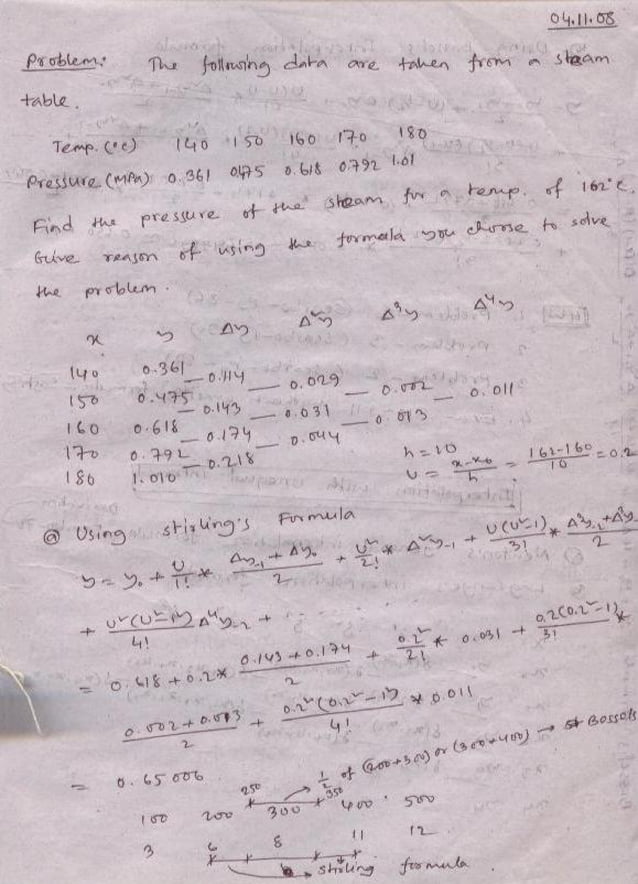 04.11.08
Problem: The following data are taken from a steam
table.
Temp. (°c) 140 150 160 170 180
Pressure (MPa) 0.361 0.475 0.618 0.792 1.01
Find the pressure of the steam for a temp. of 162°c.
Give reason of using the formula you choose to solve
the problem.
x y Δy Δ²y Δ³y Δ⁴y
140 0.361
0.114 0.029 0.002 0.011
150 0.475
0.143 0.031 0.013
160 0.618
0.174 0.044
170 0.792
0.218
180 1.010
h = 10
u = (x-x₀)/h = (162-160)/10 = 0.2
@ Using stirling's Formula
y = y₀ + u/1! * (Δy₋₁ + Δy₀)/2 + u²/2! * Δ²y₋₁ + u(u²-1)/3! * (Δ³y₋₂ + Δ³y₋₁)/2
+ u²(u²-1²)/4! Δ⁴y₋₂ + ......
= 0.618 + 0.2 * (0.143 + 0.174)/2 + 0.2²/2! * 0.031 + 0.2(0.2²-1²)/3! *
(0.002 + 0.013)/2 + 0.2²(0.2²-1²)/4! * 0.011
= 0.65006
1/2 of (200+300) or (300+400) → Bessels
250 350
100 200 300 400 500
3 6 8 11 12
stirling formula.